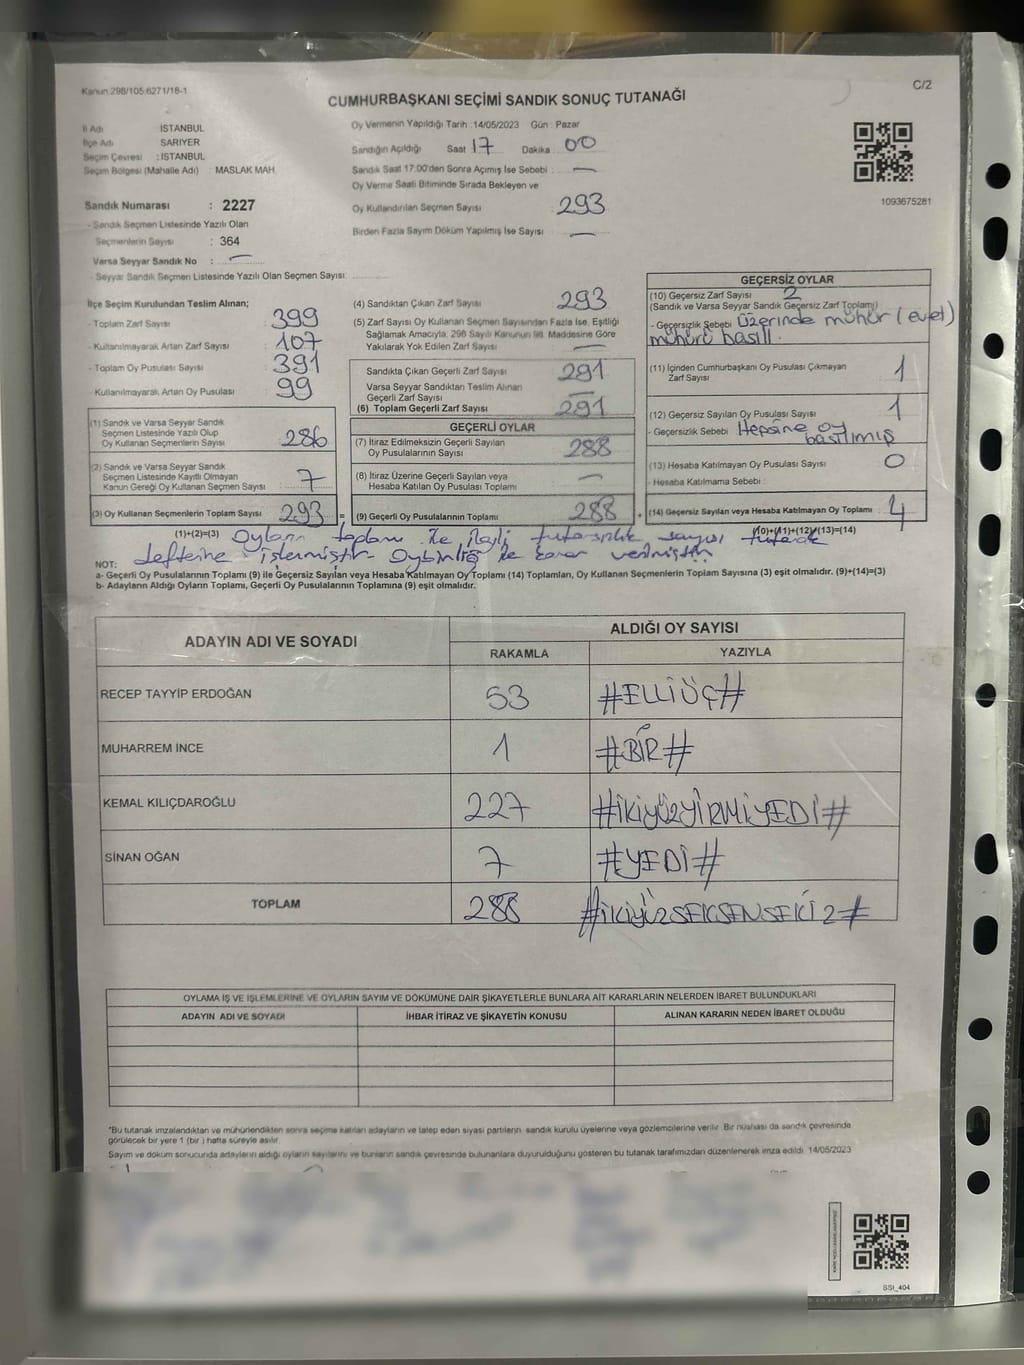 Kanun 298/105 6271/18-1
C/2
CUMHURBAŞKANI SEÇİMİ SANDIK SONUÇ TUTANAĞI
İl Adı : İSTANBUL
İlçe Adı : SARIYER
Seçim Çevresi : İSTANBUL
Seçim Bölgesi (Mahalle Adı) : MASLAK MAH.
Sandık Numarası : 2227
- Sandık Seçmen Listesinde Yazılı Olan
Seçmenlerin Sayısı : 364
Varsa Seyyar Sandık No : —
- Seyyar Sandık Seçmen Listesinde Yazılı Olan Seçmen Sayısı:
Oy Vermenin Yapıldığı Tarih :14/05/2023 Gün : Pazar
Sandığın Açıldığı Saat 17 Dakika 00
Sandık Saat 17:00'den Sonra Açımış İse Sebebi : —
Oy Verme Saati Bitiminde Sırada Bekleyen ve
Oy Kullandırılan Seçmen Sayısı : 293
Birden Fazla Sayım Döküm Yapılmış İse Sayısı : —
1093675281
İlçe Seçim Kurulundan Teslim Alınan;
- Toplam Zarf Sayısı : 399
- Kullanılmayarak Artan Zarf Sayısı : 107
- Toplam Oy Pusulası Sayısı : 391
- Kullanılmayarak Artan Oy Pusulası : 99
(1) Sandık ve Varsa Seyyar Sandık
Seçmen Listesinde Yazılı Olup
Oy Kullanan Seçmenlerin Sayısı : 286
(2) Sandık ve Varsa Seyyar Sandık
Seçmen Listesinde Kayıtlı Olmayan
Kanun Gereği Oy Kullanan Seçmen Sayısı : 7
(3) Oy Kullanan Seçmenlerin Toplam Sayısı : 293
(1)+(2)=(3)
(4) Sandıktan Çıkan Zarf Sayısı : 293
(5) Zarf Sayısı Oy Kullanan Seçmen Sayısından Fazla İse, Eşitliği
Sağlamak Amacıyla; 298 Sayılı Kanunun 98. Maddesine Göre
Yakılarak Yok Edilen Zarf Sayısı : —
Sandıkta Çıkan Geçerli Zarf Sayısı : 291
Varsa Seyyar Sandıktan Teslim Alınan
Geçerli Zarf Sayısı : —
(6) Toplam Geçerli Zarf Sayısı : 291
GEÇERLİ OYLAR
(7) İtiraz Edilmeksizin Geçerli Sayılan
Oy Pusulalarının Sayısı : 288
(8) İtiraz Üzerine Geçerli Sayılan veya
Hesaba Katılan Oy Pusulası Toplamı : —
= (9) Geçerli Oy Pusulalarının Toplamı : 288 +
GEÇERSİZ OYLAR
(10) Geçersiz Zarf Sayısı : 2
(Sandık ve Varsa Seyyar Sandık Geçersiz Zarf Toplamı)
- Geçersizlik Sebebi : üzerinde mühür (evet)
mührü basılı.
(11) İçinden Cumhurbaşkanı Oy Pusulası Çıkmayan
Zarf Sayısı : 1
(12) Geçersiz Sayılan Oy Pusulası Sayısı : 1
- Geçersizlik Sebebi : Hepsine oy
basılmış
(13) Hesaba Katılmayan Oy Pusulası Sayısı : 0
- Hesaba Katılmama Sebebi :
(14) Geçersiz Sayılan veya Hesaba Katılmayan Oy Toplamı : 4
(10)+(11)+(12)+(13)=(14)
Oyların toplamı ile ilgili tutarsızlık sayısı tutanak
defterine işlenmiştir Oybirliği ile karar verilmiştir
NOT:
a- Geçerli Oy Pusulalarının Toplamı (9) ile Geçersiz Sayılan veya Hesaba Katılmayan Oy Toplamı (14) Toplamları, Oy Kullanan Seçmenlerin Toplam Sayısına (3) eşit olmalıdır. (9)+(14)=(3)
b- Adayların Aldığı Oyların Toplamı, Geçerli Oy Pusulalarının Toplamına (9) eşit olmalıdır.
ADAYIN ADI VE SOYADI
ALDIĞI OY SAYISI
RAKAMLA YAZIYLA
RECEP TAYYİP ERDOĞAN 53 #ELLİÜÇ#
MUHARREM İNCE 1 #BİR#
KEMAL KILIÇDAROĞLU 227 #İKİYÜZYİRMİYEDİ#
SİNAN OĞAN 7 #YEDİ#
TOPLAM 288 #İKİYÜZSEKSENSEKİZ#
OYLAMA İŞ VE İŞLEMLERİNE VE OYLARIN SAYIM VE DÖKÜMÜNE DAİR ŞİKAYETLERLE BUNLARA AİT KARARLARIN NELERDEN İBARET BULUNDUKLARI
ADAYIN ADI VE SOYADI İHBAR İTİRAZ VE ŞİKAYETİN KONUSU ALINAN KARARIN NEDEN İBARET OLDUĞU
"Bu tutanak imzalandıktan ve mühürlendikten sonra seçime katılan adayların ve talep eden siyasi partilerin sandık kurulu üyelerine veya gözlemcilerine verilir. Bir nüshası da sandık çevresinde
görülecek bir yere 1 (bir) hafta süreyle asılır.
Sayım ve döküm sonucunda adayların aldığı oyların sayılarını ve bunların sandık çevresinde bulunanlara duyurulduğunu gösteren bu tutanak tarafımızdan düzenlenerek imza edildi. 14/05/2023
SSI_404